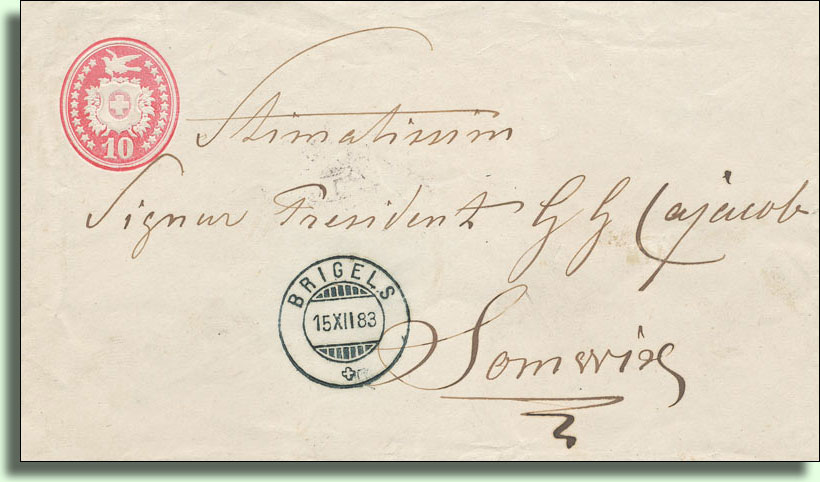 10
Stimatissim
Signur President G G Cajacob
BRIGELS
15XII83
Somvix